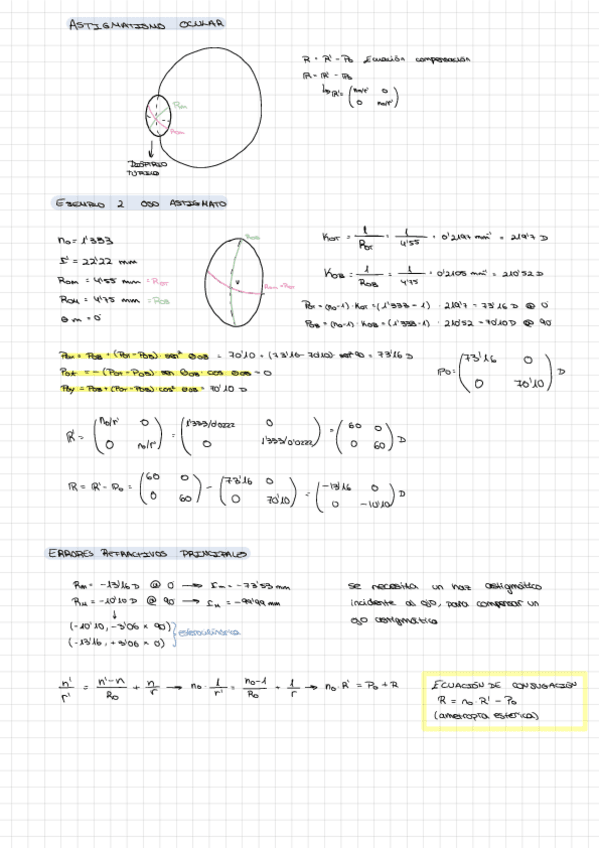 ASTIGMATISMO OCULAR
R = R' - Po Ecuación compensación
ℝ = ℝ' - ℙo
↳ ℝ' = (no/r' 0
0 no/r')
Rom
DIOPTRIO
TÓRICO
EJEMPLO 2 OJO ASTIGMATO
no = 1'333
r' = 22'22 mm
Rom = 4'55 mm = Rot
RoM = 4'75 mm = RoB
θm = 0
Kot = 1/Rot = 1/4'55 = 0'2197 mm⁻¹ = 219'7 D
KoB = 1/RoB = 1/4'75 = 0'2105 mm⁻¹ = 210'52 D
Pot = (no-1)·Kot = (1'333-1)·219'7 = 73'16 D @ 0
PoB = (no-1)·KoB = (1'333-1)·210'52 = 70'10 D @ 90
Pox = PoB + (Pot-PoB)·sen² θoB = 70'10 + (73'16-70'10)·sen² 90 = 73'16 D
Pot = -(Pot-PoB)·sen θoB·cos θoB = 0
Poy = PoB + (Pot-PoB)·cos² θoB = 70'10 D
ℙo = (73'16 0
0 70'10) D
ℝ' = (no/r' 0 = (1'333/0'0222 0 = (60 0
0 no/r') 0 1'333/0'0222) 0 60) D
ℝ = ℝ' - ℙo = (60 0 - (73'16 0 = (-13'16 0
0 60) 0 70'10) 0 -10'10) D
ERRORES REFRACTIVOS PRINCIPALES
Rm = -13'16 D @ 0 → rm = -73'53 mm
RM = -10'10 D @ 90 → rM = -99'99 mm
(-10'10, -3'06 × 90)
(-13'16, +3'06 × 0)
esferocilíndrica
se necesita un haz astigmático
incidente al ojo, para compensar un
ojo astigmático
n'/r' = n'-n/Ro + n/r → no · 1/r' = no-1/Ro + 1/r → no·R' = Po + R
ECUACIÓN DE CONJUGACIÓN
R = no·R' - Po
(ametropía esférica)